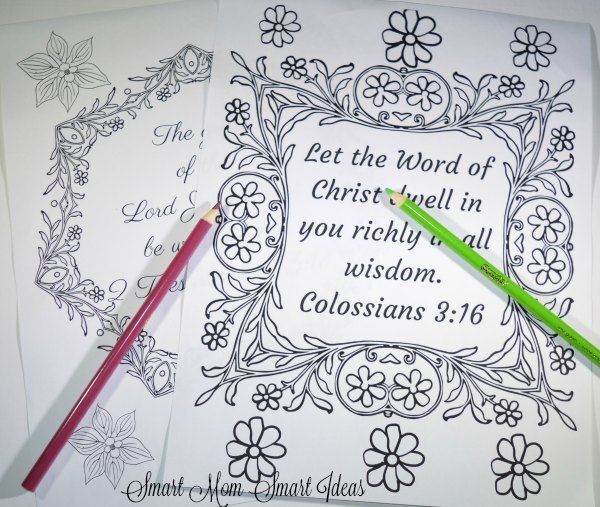 The
of
Lord
be
2 Thes
Let the Word of
Christ dwell in
you richly in all
wisdom.
Colossians 3:16
Smart Mom Smart Ideas